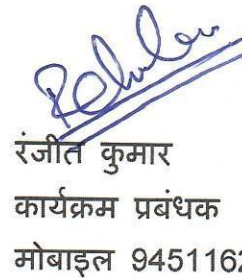 रंजीत कुमार
कार्यक्रम प्रबंधक
मोबाइल 9451162